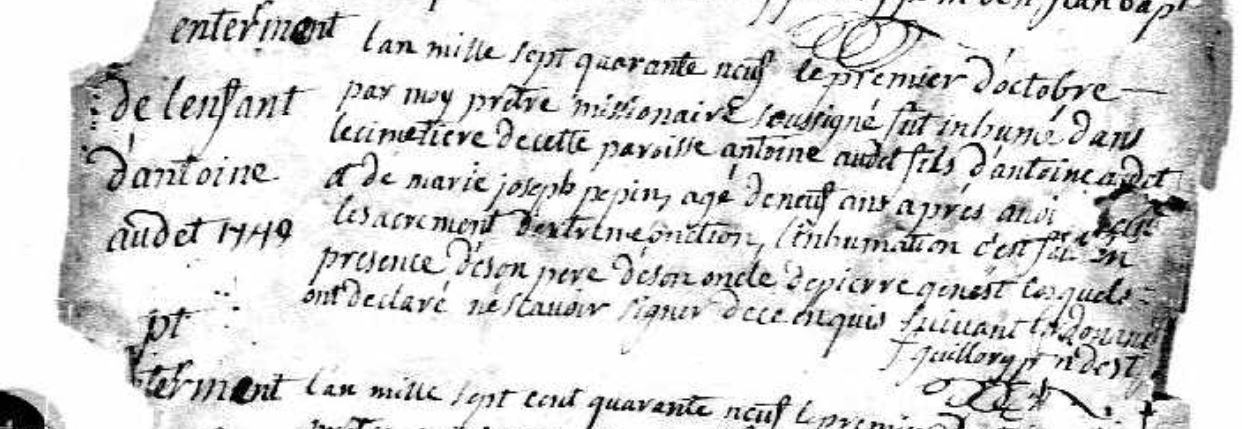 enterment
de lenfant
d'antoine
audet 1749
lan mille sept quarante neuf le premier d'octobre —
par moy prêtre missionaire soussigné fut inhumé dans
le cimetiere de cette paroisse antoine audet fils d'antoine audet
& de marie joseph pepin, agé de neuf ans après avoir
le sacrement d'extreme onction, l'inhumation c'est fait en
presence de son pere de son oncle de pierre genest lesquels
ont declaré ne scavoir signer de ce enquis suivant
pt
terment
l'an mille sept cent quarante neuf le premier